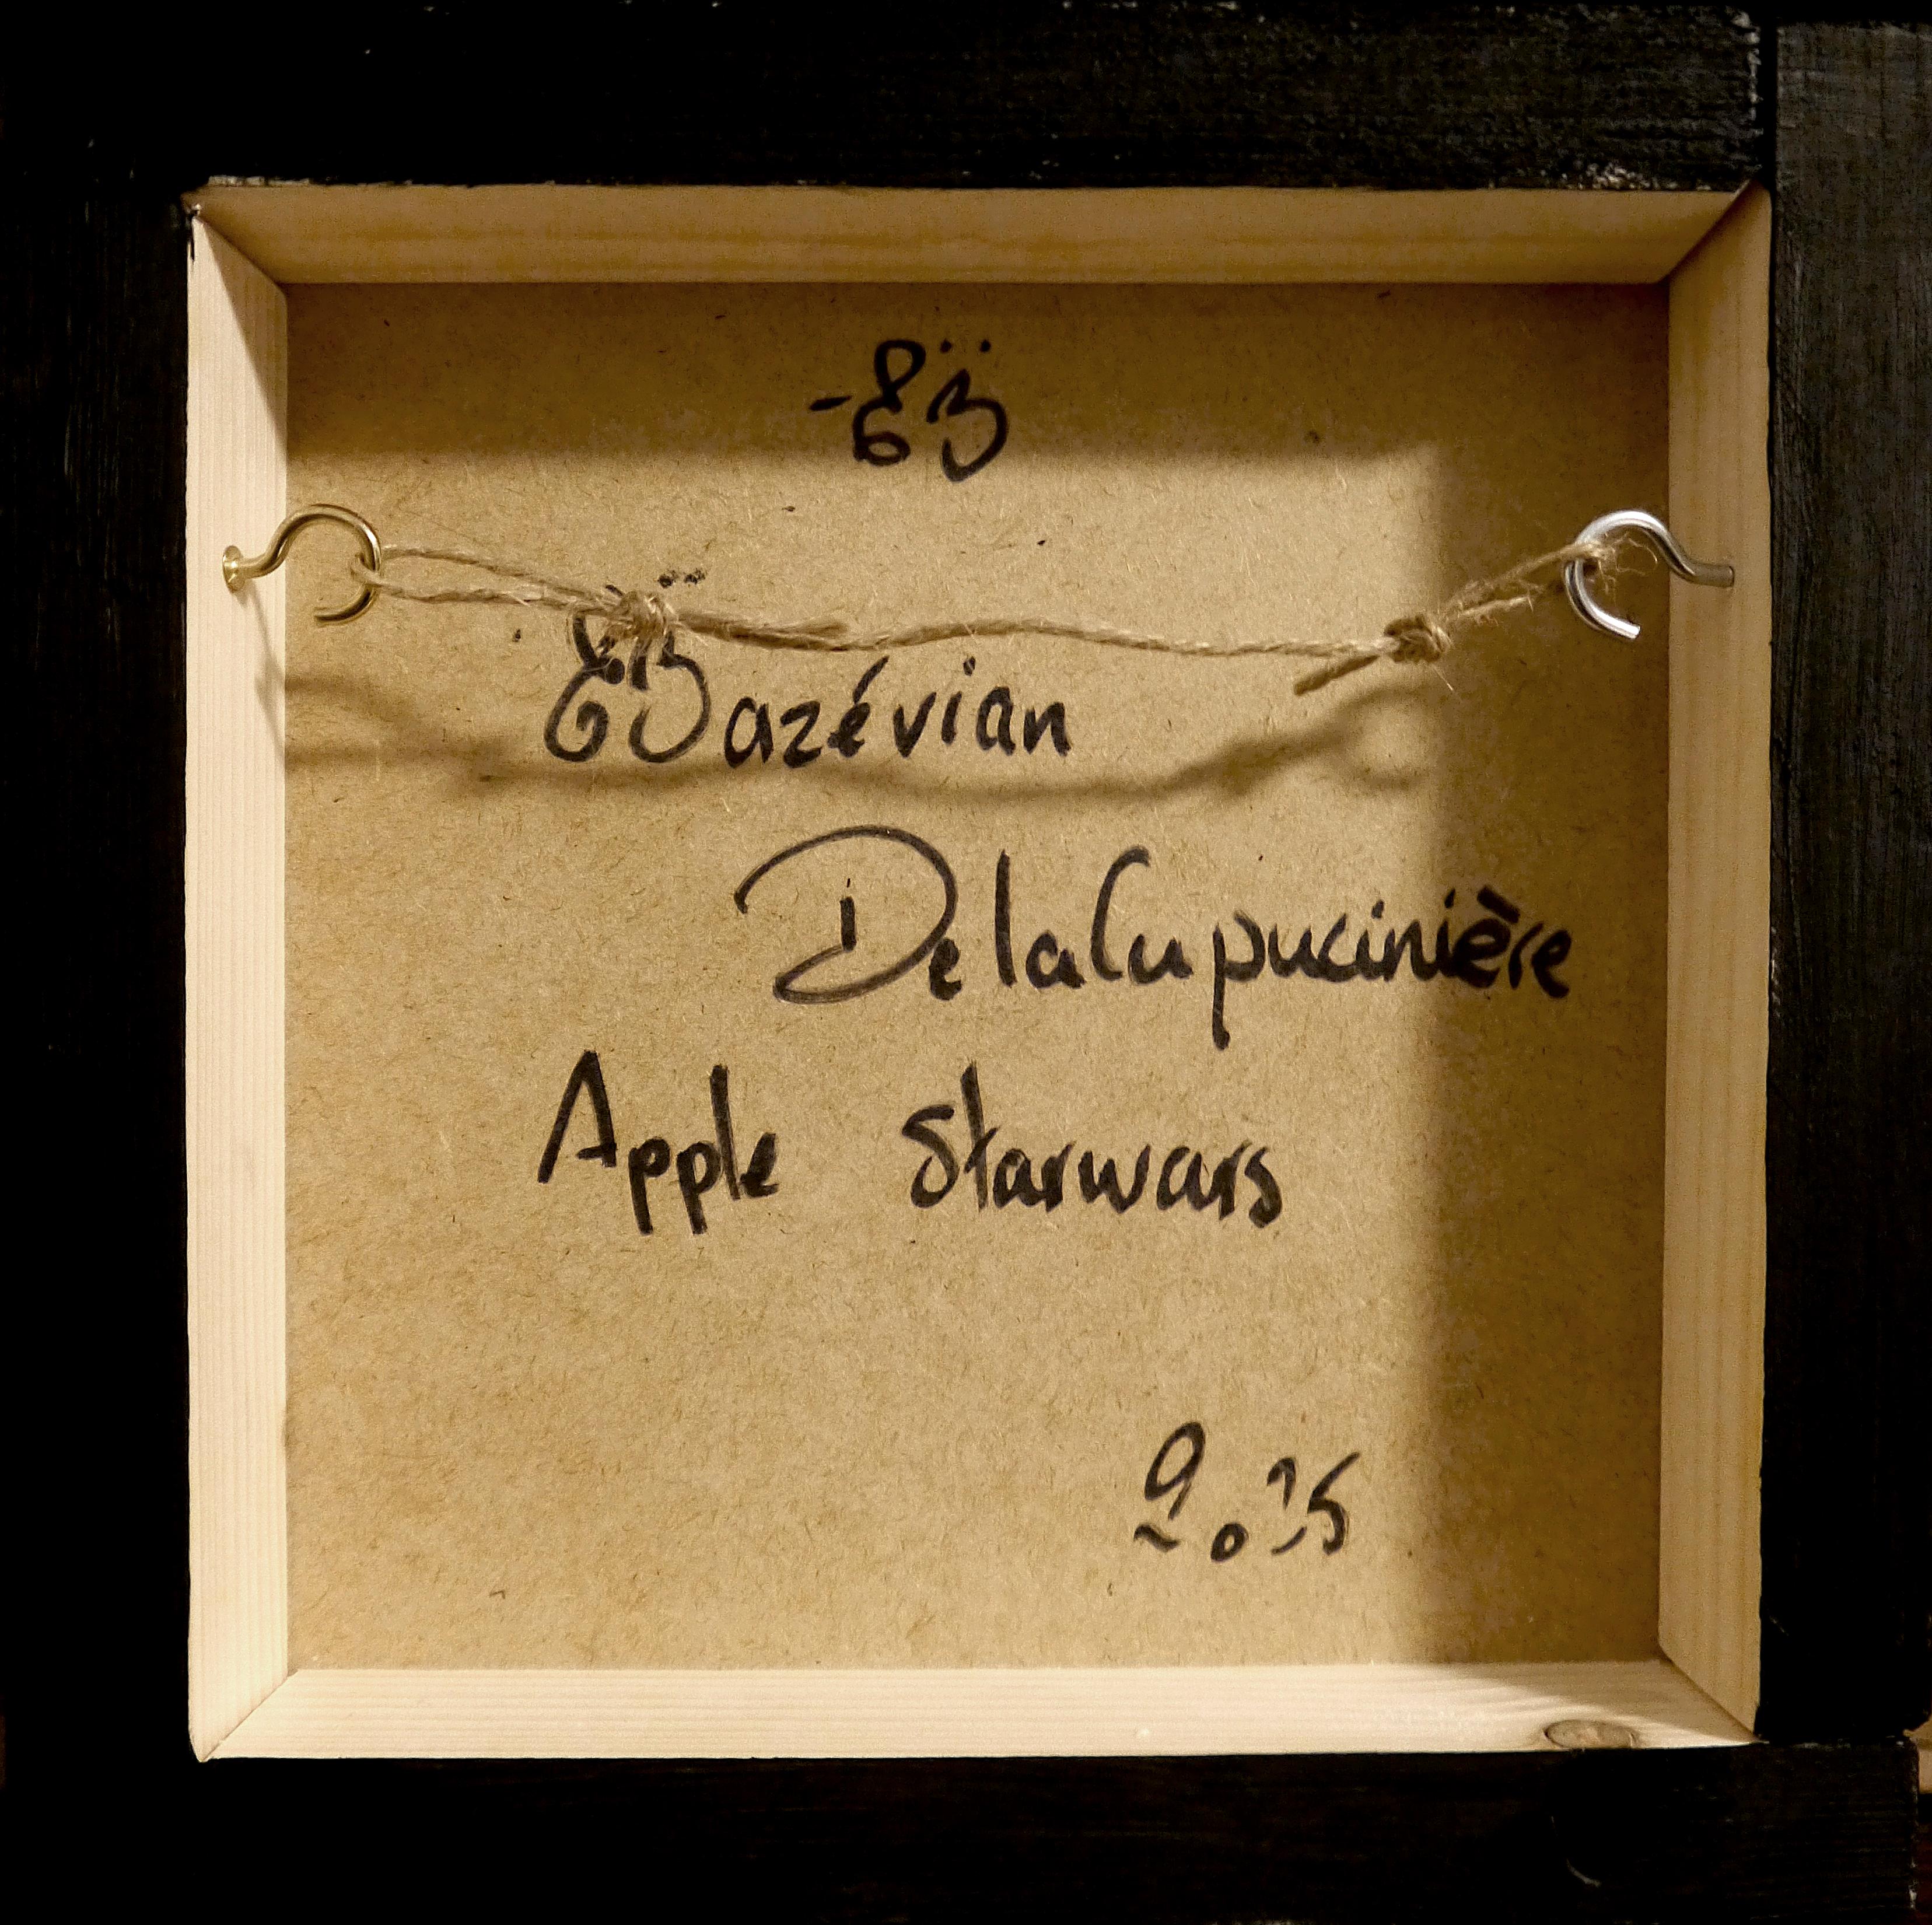 Bazévian
DelaCapucinière
Apple Starwars
2015